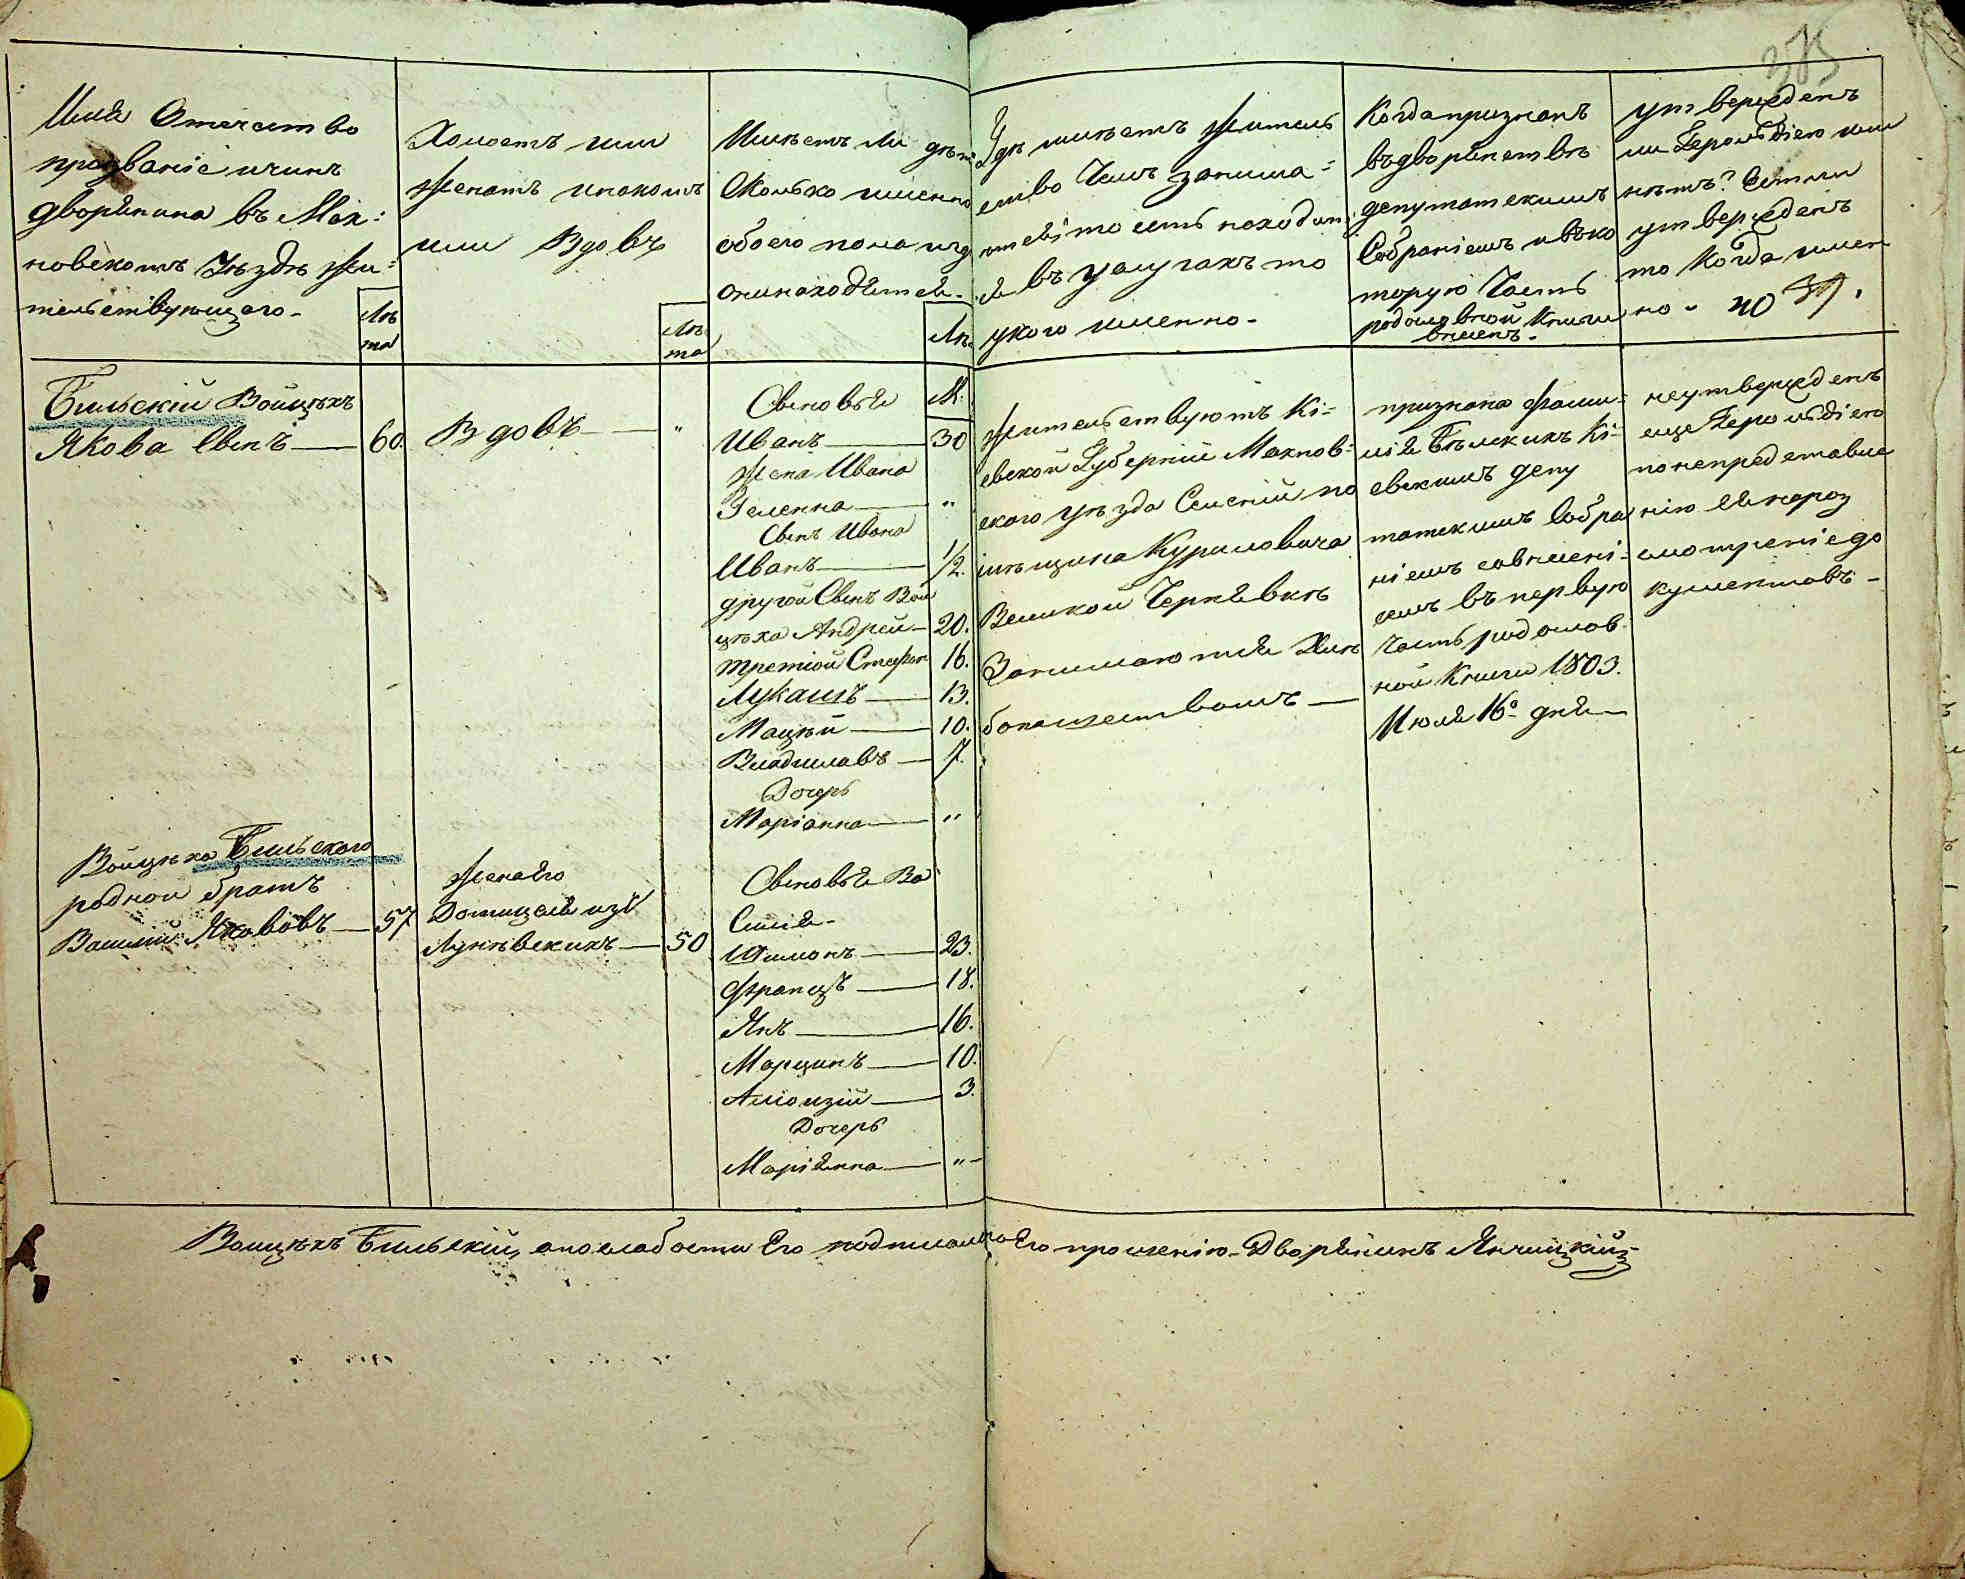 385
Имя Отечество
прозваніе и чинъ
дворянина въ Мах-
новскомъ Уѣздѣ жи-
тельствующаго.
Лѣ
та
Холостъ или
женатъ и на комъ
или Вдовъ
Лѣ
та
Имѣетъ ли дѣтей
Сколько именно
обоего пола и гдѣ
они находятся.
Лѣ.
Гдѣ имѣетъ житель
ство Чемъ занима-
ется
я въ услугахъ то
у кого именно.
Когда признанъ
въ дворянствѣ
депутатскимъ
Собраніемъ и въ ко
торую Часть
родословной Книги
внесенъ.
утвержденъ
ли Герольдіею или
нѣтъ? Если
утвержденъ
то Когда имен
но
Бильскій Войцѣхъ
Якова Сынъ 60.
Вдовъ "
Сыновья М.
Иванъ 30
жена Ивана
"
Сынъ Ивана
Иванъ 1/2.
другой Сынъ Вой
цѣха Андрей 20.
третій Стефан 16.
Лукашъ 13.
Мацѣй 10.
Владиславъ 7.
Дочерь
Маріанна "
жительствуютъ Кі-
евской Губерніи Махнов-
скаго уѣзда Селеніи по
мѣщика Куриловича
Великой Чернявкѣ
Занимаются Хлѣ
бопашествомъ
признана фами-
лія Бѣлскихъ Кі-
евскимъ депу
татскимъ Собра
ніемъ совнесені-
емъ въ первую
Часть родослов-
ной Книги 1803.
Июля 16о дня
неутвержденъ
еще Герольдіею
понепредставле
нію ей на раз
смотреніе до
кументовъ
Войцѣха Бильскаго
родной братъ
Василій Яковъ 57
жена Его
Домицеля изъ
Лунѣвскихъ 50
Сыновья Ва
силія
Шимонъ 23.
Францъ 18.
Янъ 16.
Марцинъ 10.
Алоизій 3.
Дочерь
Маріянна "
Войцѣхъ Бильскій, а по слабости Его подписалъ по Его прошенію Дворянинъ Янчицкій